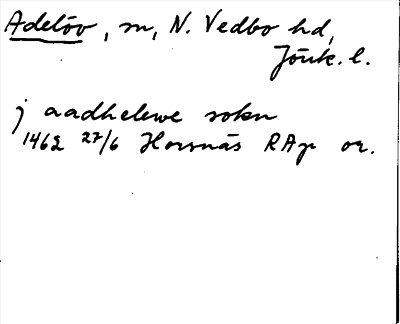 Adelöv, sn, N. Vedbo hd,
Jönk. l.
j aadhelewe sokn
1462 27/6 Hornäs RAp or.